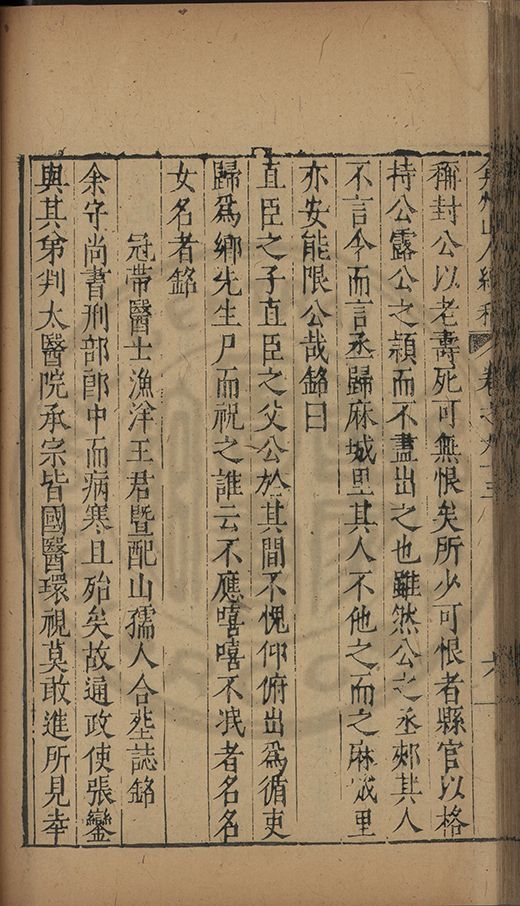 弇州山人續稿 卷之九十三 六
稱封公以老壽死可無恨矣所少可恨者縣官以格
持公露公之穎而不盡出之也雖然公之丞郟其人
不言今而言丞歸麻城里其人不他之而之麻城里
亦安能限公哉銘曰
直臣之子直臣之父公於其間不愧仰俯出爲循吏
歸爲鄉先生尸而祝之誰云不應嘻嘻不泯者名名
女名者銘
冠帶醫士漁洋王君暨配山孺人合塟誌銘
余守尚書刑部郎中而病寒且殆矣故通政使張鑾
與其弟判太醫院承宗皆國醫環視莫敢進所見幸